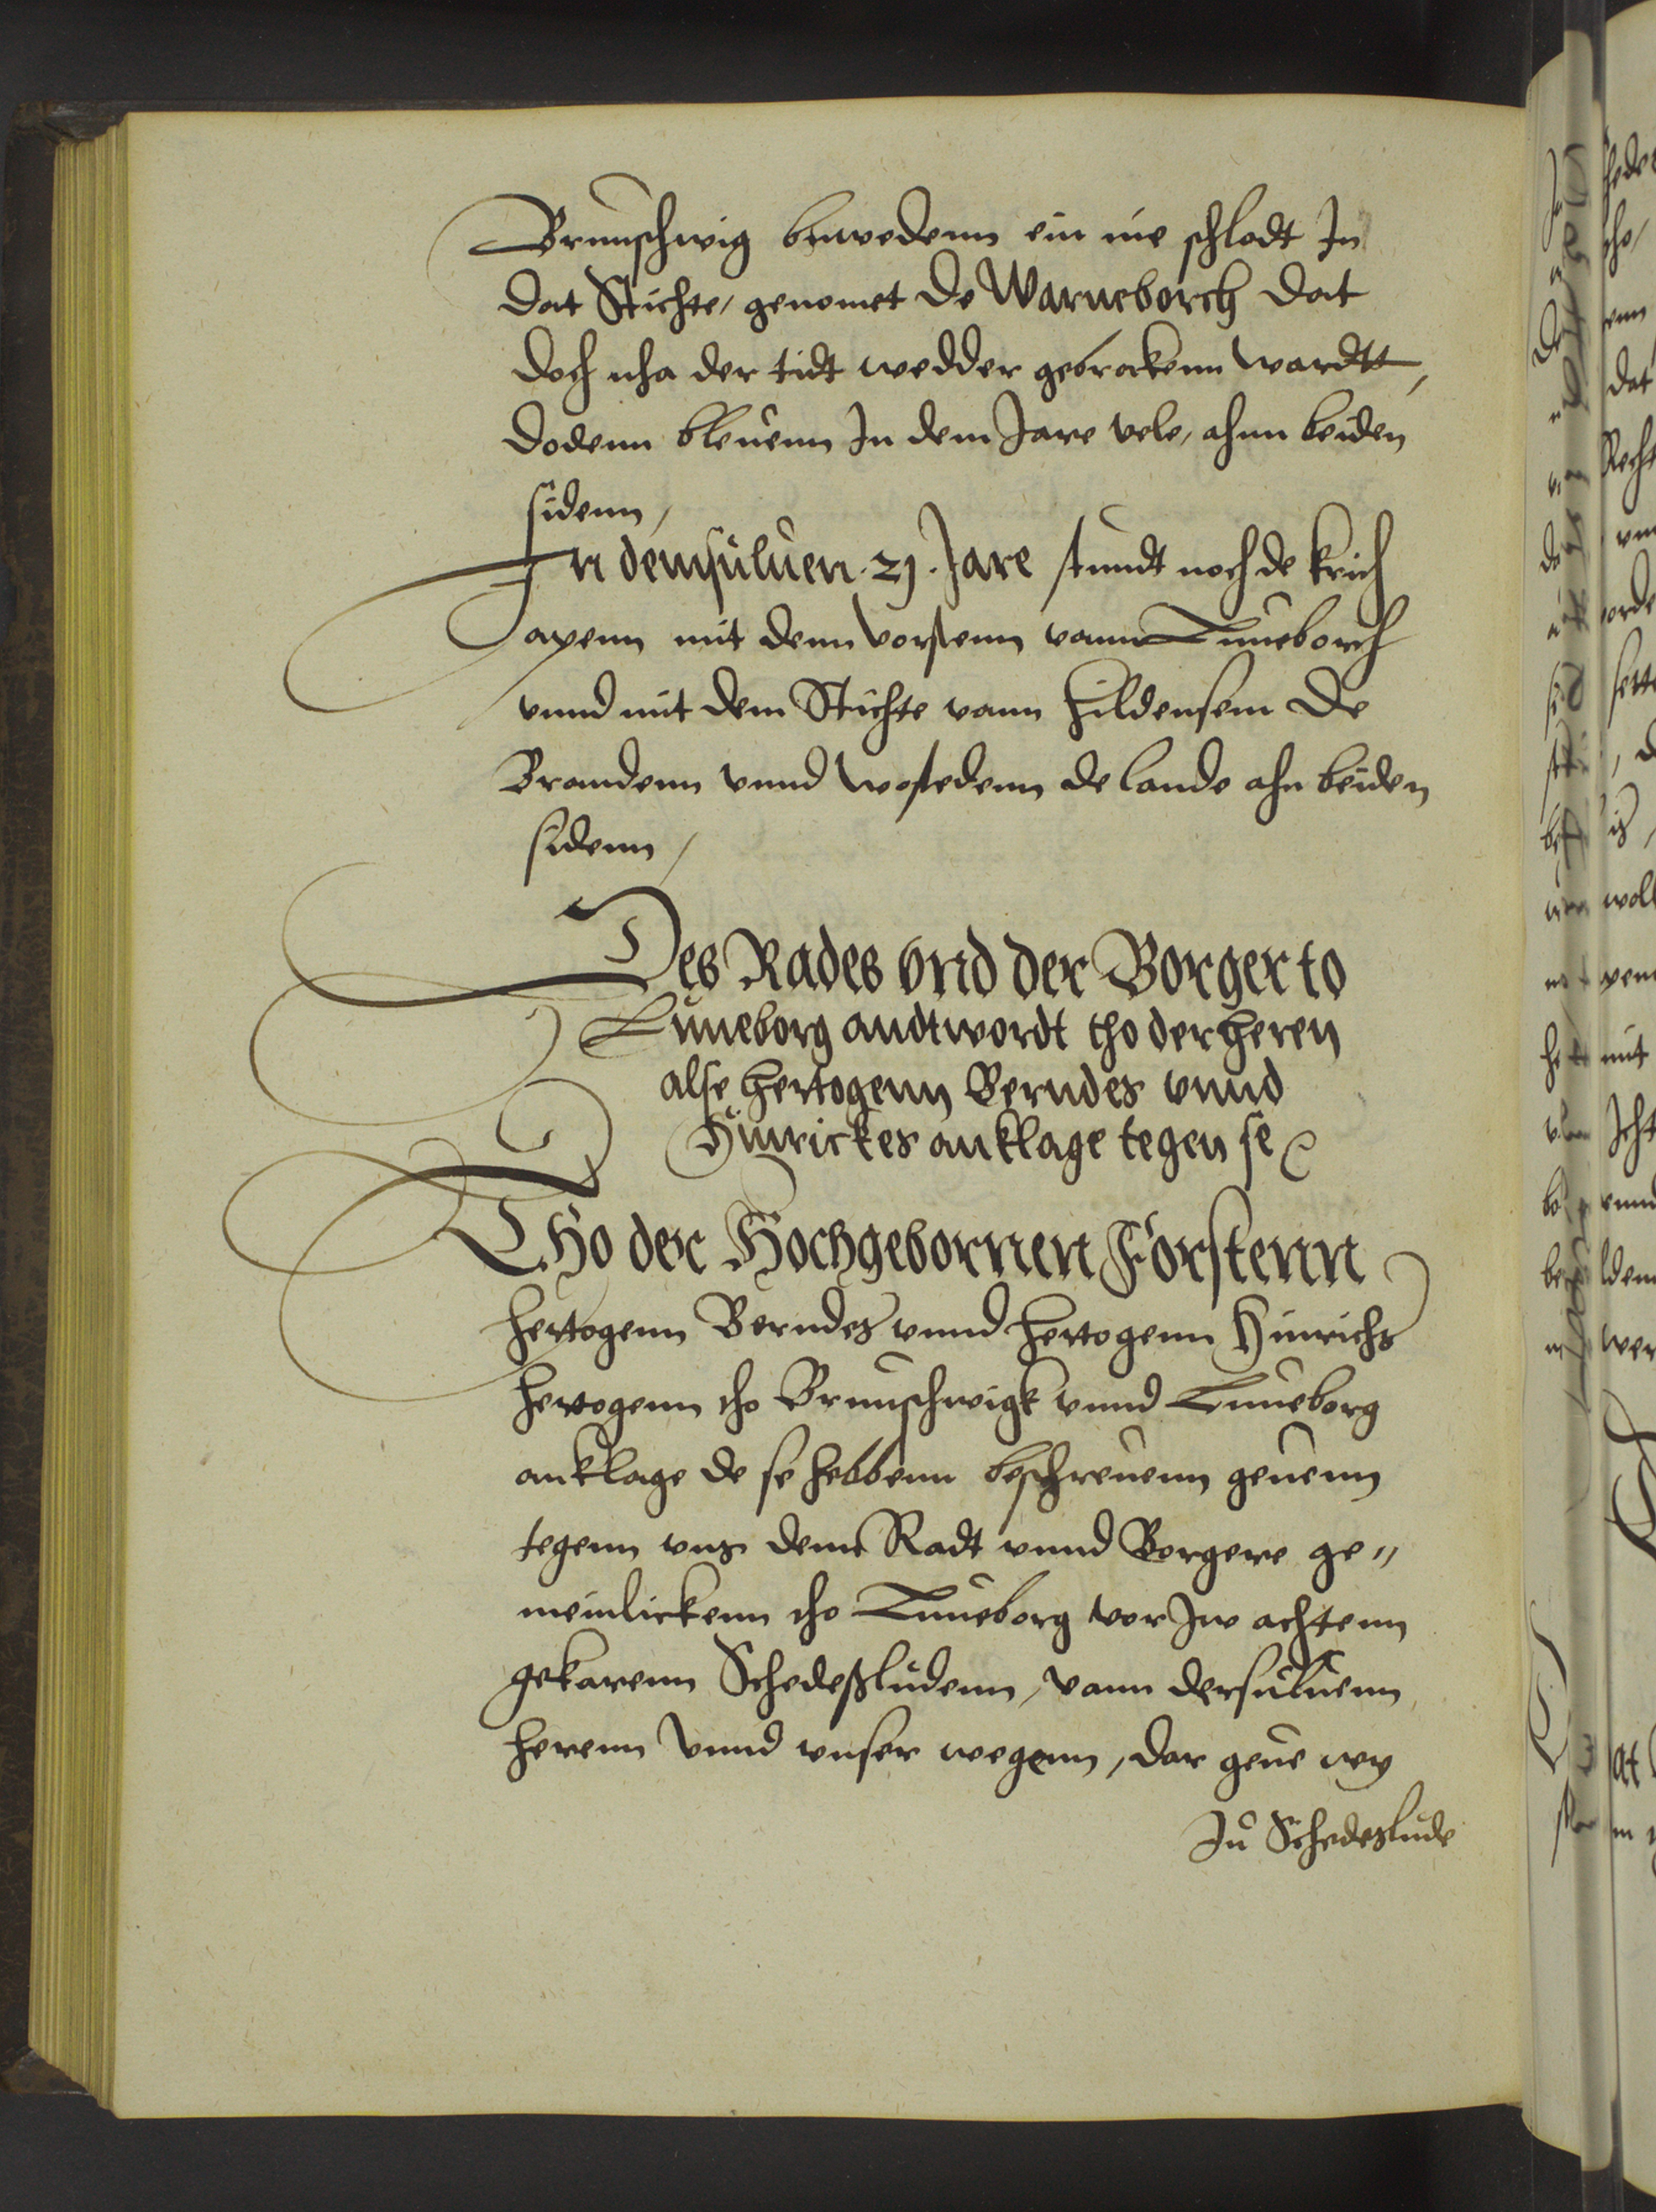 Brunschwig buwedenn ein nie schlodt In
dat Stichte, genomet de Warneborch dat
doch nha der tidt wedder gebrockenn wardtt,
dodenn bleuenn In dem Jare vele, ahnn beiden
sidenn,
In demsuluen .21. Jare stundt noch de krich
apenn mit denn vorstenn vann Luneborch
vnnd mit dem Stichte vann Hildensem de
Brandenn vnnd wostedenn de lande ahn beiden
sidenn,
Des Rades vnd der Borger to
Luneborg andtwordt tho der heren
alse hertogenn Berndes vnnd
Hinrickes anklage tegen se
THo der Hochgebornen Forstenn
hertogenn Berndes vnnd hertogenn Hinrichs
hertogenn tho Brunschwigk vnnd Luneborg
anklage de se hebbenn beschreuenn geuenn
tegenn vns denn Radt vnnd Borgere ge"
meinlickenn tho Luneborg vor Jw achtenn
gekarenn Schedeßludenn, vann dersuluenn
herenn vnnd vnser wegenn, dar geue wy
Ju Schedeslude